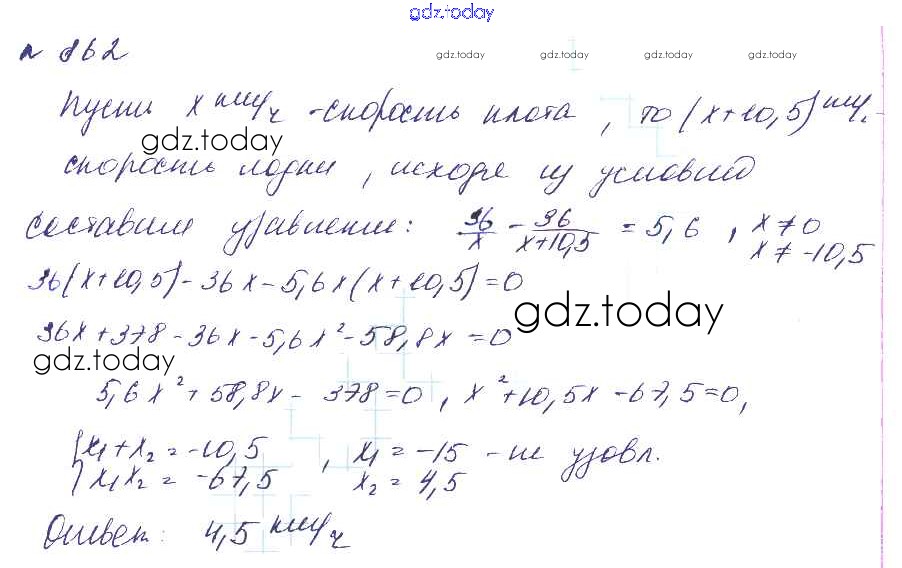 gdz.today
№ 862
gdz.today gdz.today gdz.today gdz.today
Пусть x км/ч - скорость плота, то (x+10,5) км/ч -
gdz.today
скорость лодки, исходя из условий
составим уравнение: 36/x - 36/(x+10,5) = 5,6, x ≠ 0
x ≠ -10,5
36(x+10,5) - 36x - 5,6x(x+10,5) = 0
gdz.today
36x + 378 - 36x - 5,6x² - 58,8x = 0
gdz.today
5,6x² + 58,8x - 378 = 0, x² + 10,5x - 67,5 = 0,
{x₁ + x₂ = -10,5, x₁ = -15 - не удовл.
x₁x₂ = -67,5 x₂ = 4,5
Ответ: 4,5 км/ч